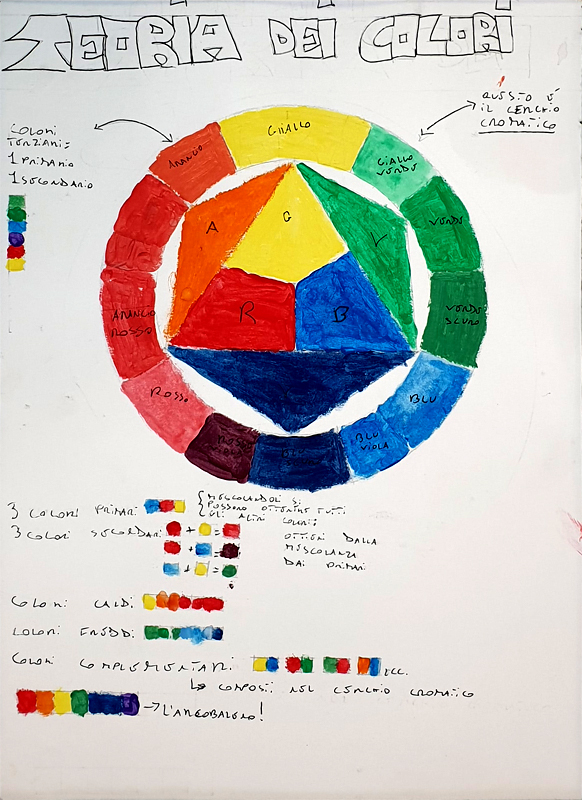 TEORIA DEI COLORI
QUESTO È
IL CERCHIO
CROMATICO
COLORI
TERZIARI:
1 PRIMARIO
1 SECONDARIO
ARANCIO
GIALLO
GIALLO
VERDE
VERDE
VERDE
SCURO
BLU
BLU
VIOLA
ROSSO
ARANCIO
ROSSO
A
G
R
B
3 COLORI PRIMARI
{MESCOLANDOLI SI
POSSONO OTTENERE TUTTI
GLI ALTRI COLORI:
3 COLORI SECONDARI
+ =
+ =
+ =
OTTENI DALLA
MESCOLANZA
DAI PRIMARI
COLORI CALDI
COLORI FREDDI
COLORI COMPLEMENTARI: ECC.
↳ COMPOSTI NEL CERCHIO CROMATICO
→ L'ARCOBALENO!